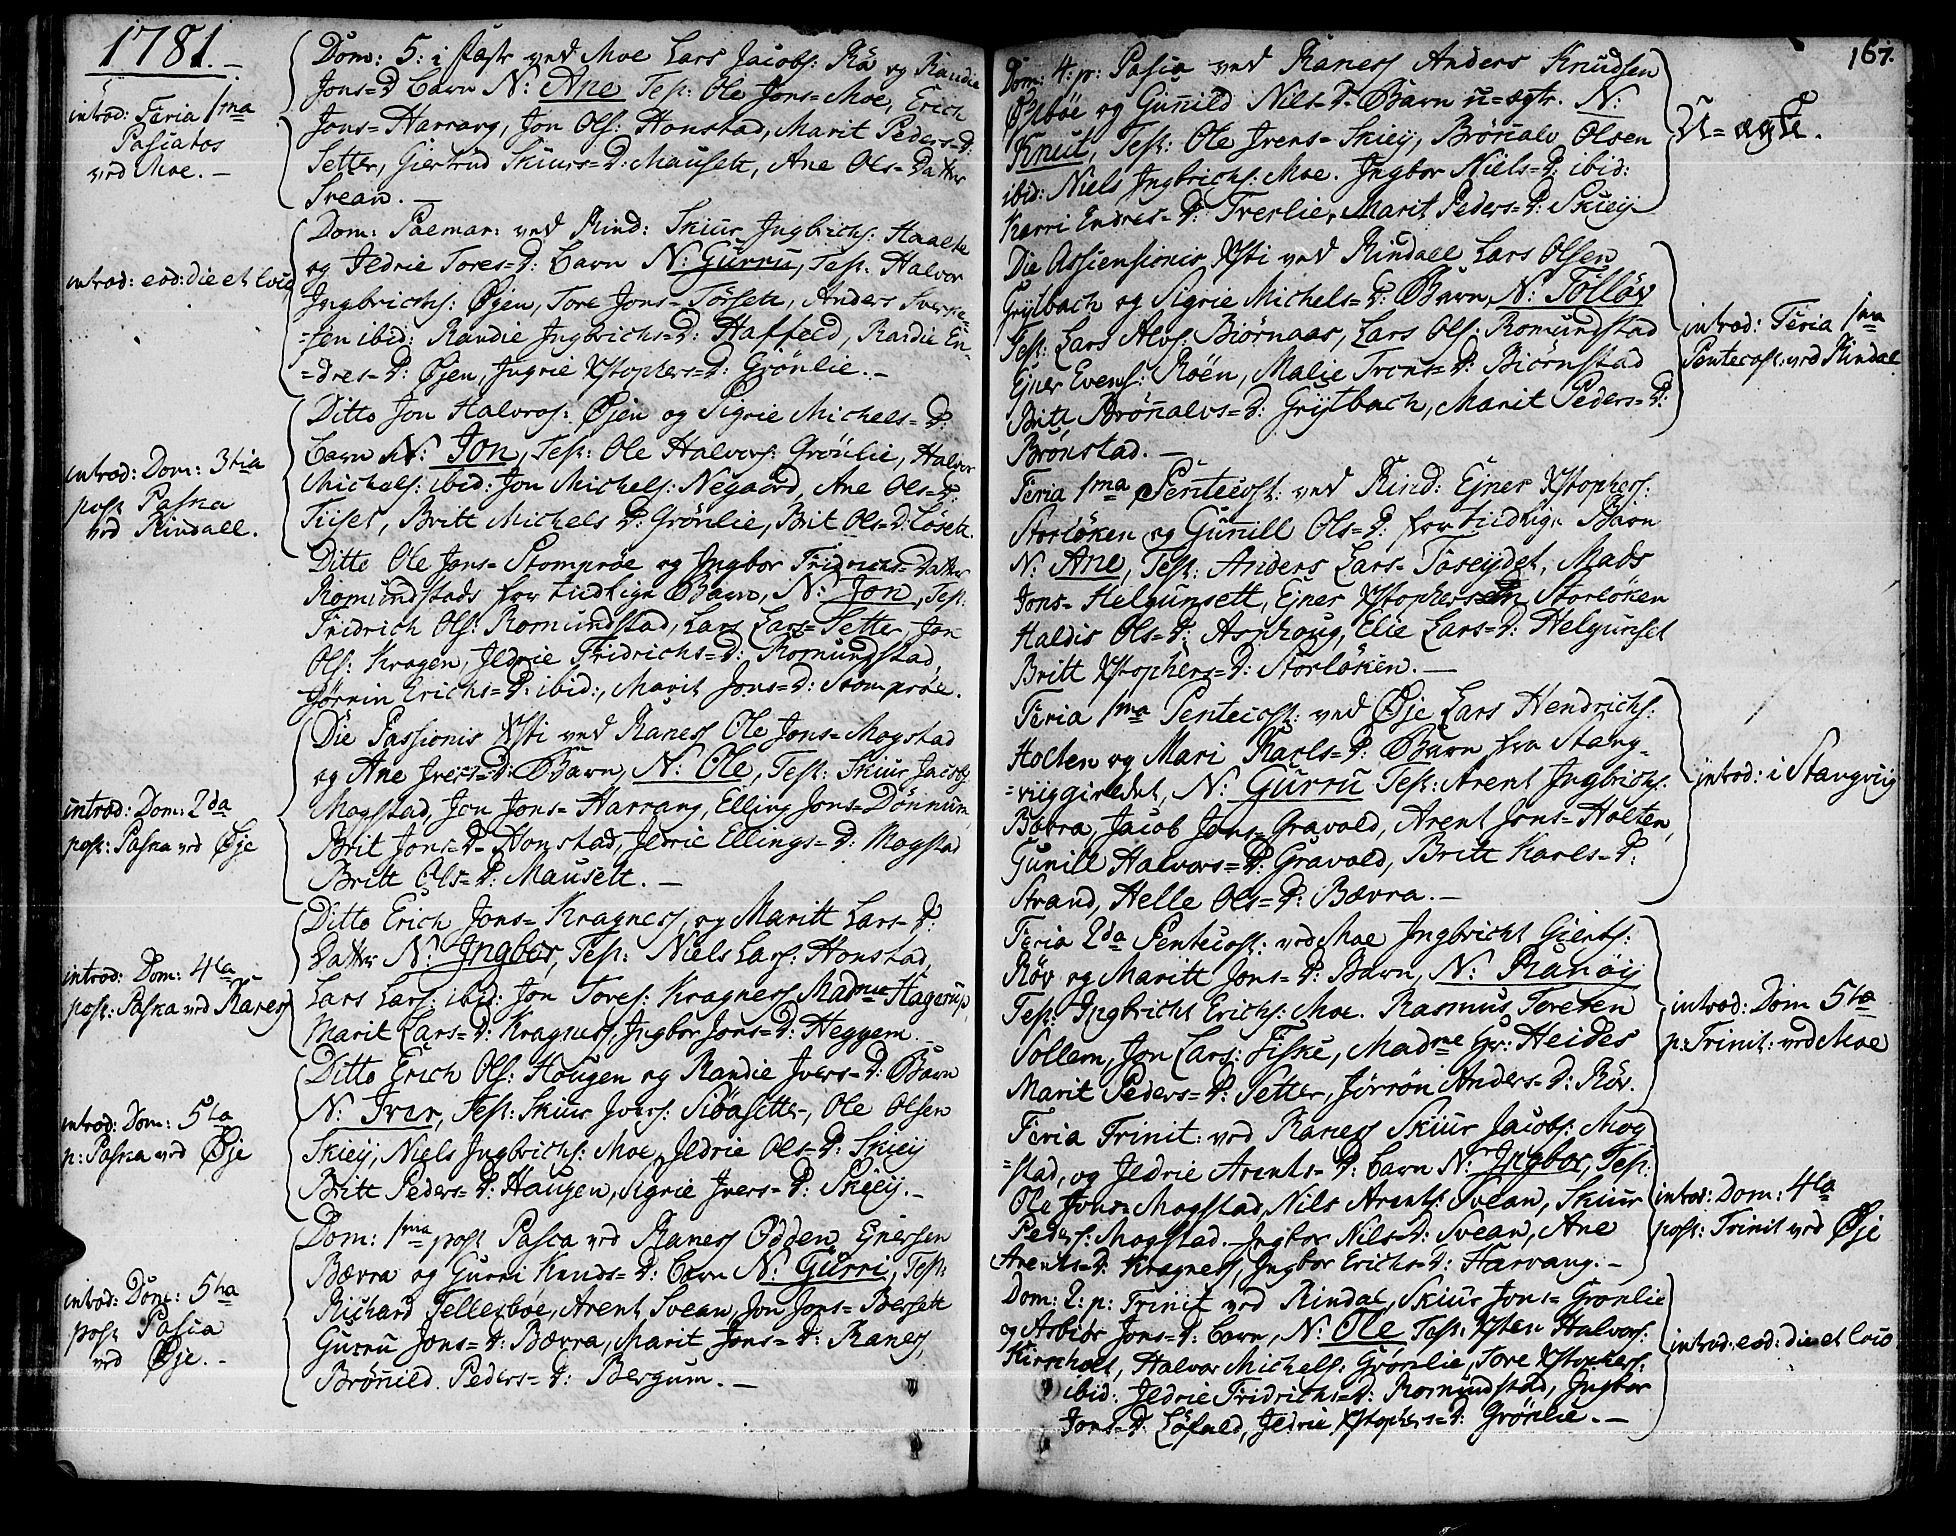 1781.-
introd: Feria 1ma
Paschatos
ved Moe.-
Dom: 5: i Faste ved Moe Lars Jacobs: Rä og Randie
Jons=D Barn N: Ane Test: Ole Jons=Moe, Erich
Jons=Harrang, Jon Ols: Honstad, Marit Peders=D:
Setter, Giertrud Skiurs=D: Mausett, Ane Ols=Datter
Svean.-
introd: eod: die et loco
Dom: Palmar: ved Rind: Skiur Ingbrichs: Haalte
og Jldrie Tores=D: Barn N: Gurru, Test: Halvor
Ingbrichs: Øjen, Tore Jons=Törsett, Anders Sverke=
=sen ibid: Randie Ingbrichs=D: Haffeld, Randie En=
=dres=D: Øjen, Ingrie Xstophers=D: Grönlie.-
introd: Dom: 3tia
post Paska
ved Rindall.
Ditto Jon Halvors: Øjen og Sigrie Michels=D:
Barn N: Jon, Test: Ole Halvors: Grönlie, Halvor
Michels: ibid: Jon Michels: Negaard, Ane Ols=D:
Tiiset, Britt Michels D: Grönlie, Brit Ols=D: Löset.
Ditto Ole Jons=Stomprøe og Ingbor Fridrichs=Datter
Romundstads for tiidlige Barn, N: Jon, Test:
Fridrich Ols: Romundstad, Lars Lars=Setter, Jon
Ols: Kragen, Jldrie Fridrichs=D: Romundstad,
Jörrin Erichs=D: ibid:, Marit Jons=D: Stomprøe.
introd: Dom: 2da
post: Paska ved Øje
Die Passionis Xsti ved Ranes Ole Jons=Mogstad
og Ane Ivers=D: Barn, N: Ole, Test: Skiur Jacobs:
Mogstad, Jon Jons=Harrang, Elling Jons=Dönnum,
Brit Jons=D=Honstad, Jldrie Ellings=D: Mogstad
Britt Ols=D: Mausett.-
introd: Dom: 4ta
post: Paska ved Ranes
Ditto Erich Jons=Kragnes, og Maritt Lars=D:
Datter N: Ingbor, Test: Niels Lars: Honstad,
Lars Lars: ibid: Jon Tores: Kragnes Madme Hagerup,
Marit Lars=D: Kragnes, Ingbor Jons=D: Heggem.-
introd: Dom: 5ta
p: Paska ved Øje
Ditto Erich Ols: Hougen og Randie Ivers=D: Barn
N: Iver, Test: Skiur Ivers: Siöasetter, Ole Olsen
Skiey, Niels Ingbrichs: Moe, Jldrie Ols=D: Skiey
Britt Peders=D: Haugen, Sigrie Ivers=D: Skiey.-
introd: Dom: 5ta
post Pasca
ved Øje.-
Dom: 1ma post Pasca ved Ranes Odden Ejnersen
Bævra og Gurri Knuds=D: Barn N: Gurri, Test:
Richard Tellesbøe, Arent Svean, Jon Jons=Bersett
Gurru Jons=D: Bævra, Marit Jons=D: Ranes,
Brönild Peders=D: Bergum.-
167.
Dom: 4: p: Pasca ved Ranes Anders Knudsen
Østbøe og Gunild Nils=D=Barn u=ægte. N:
Knut, Test: Ole Ivers=Skiey, Brönalv Olsen
ibid: Niels Ingbrichs: Moe. Ingbor Niels=D: ibid:
Karri Endres=D: Trerlie, Marit Peders=D: Skiey
U=ægte.
Die Assiensionis Xsti ved Rindall Lars Olsen
Grytbach og Sigrie Michels=D: Barn, N: Tölløv
Test: Lars Alvs: Biörnaas, Lars Ols: Romundstad
Ejner Evens: Röen, Malie Trons=D: Biörnstad
Britt Brönalvs=D: Grytbach, Marit Peders=D:
Brönstad.-
introd: Feria 1ma
Pentecost: ved Rindal
Feria 1ma Pentecost: ved Rind: Ejner Xstophers:
Storlöken og Gunill Ols=D: for tiidlige Barn
N: Ane, Test: Anders Lars=Tøseydet, Mads
Jons=Helgunsett, Ejner Xstophers= Storlöken
Haldis Ols=D: Asphoug, Elie Lars=D: Helgunset
Britt Xstophers=D: Storlöken.-
Feria 1ma Pentecost: ved Øje Lars Hendrichs:
Holten og Mari Karls=D: Barn fra Stang=
=viiggieldet, N: Gurru Test: Arent Ingbrichs:
Bøvra, Jacob Jons=Gravald, Arent Jons=Holten,
Gunill Halvors=D: Gravald, Britt Karls=D:
Strand, Helle Ols=D: Bævra.-
introd: i Stangviig
Feria 2da Pentecost: ved Moe Ingbricht Gierts:
Röv og Maritt Jons=D: Barn, N: Ranöiy
Test: Ingbricht Erichs: Moe. Rasmus Toresen
Sollem, Jon Lars: Fiske, Madme Hr: Heides
Marit Peders=D: Setter, Jörrön Anders=D: Röv.
introd: Dom 5ta
p: Trinit: ved Moe
Feria Trinit: ved Ranes Skiur Jacobs: Mog
=stad, og Jldrie Arents=D: Barn N: Ingbor, Test:
Ole Jons=Mogstad, Nils Arents: Svean, Skiur
Peders: Mogstad. Ingbor Nils D: Svean, Ane
Arents=D: Kragnes, Ingbor Erichs=D: Harvang.-
introd: Dom: 4ta
post: Trinit ved Øje
Dom: 2: p: Trinit ved Rindal, Skiur Jons=Grönlie
og Asbiör Jons=D: Barn, N: Ole Test: Xsten Halvors:
Kircholt, Halvor Michels: Grönlie, Tore Xstophers:
ibid: Jldrie Fridrichs=D: Romundstad, Ingbor
Jons=D: Löfald, Jldrie Xstophers=D: Grönlie.-
introd: eod: die et loco